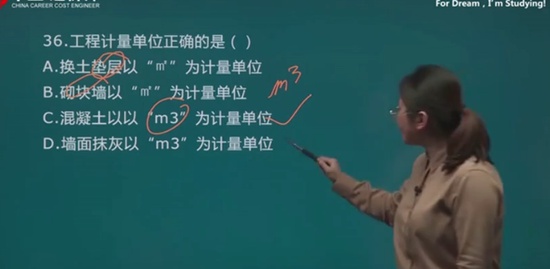 CHINA CAREER COST ENGINEER
For Dream, I'm Studying!
36.工程计量单位正确的是( )
A.换土垫层以“㎡”为计量单位
B.砌块墙以“㎡”为计量单位
m³
C.混凝土以以“m3”为计量单位
D.墙面抹灰以“m3”为计量单位